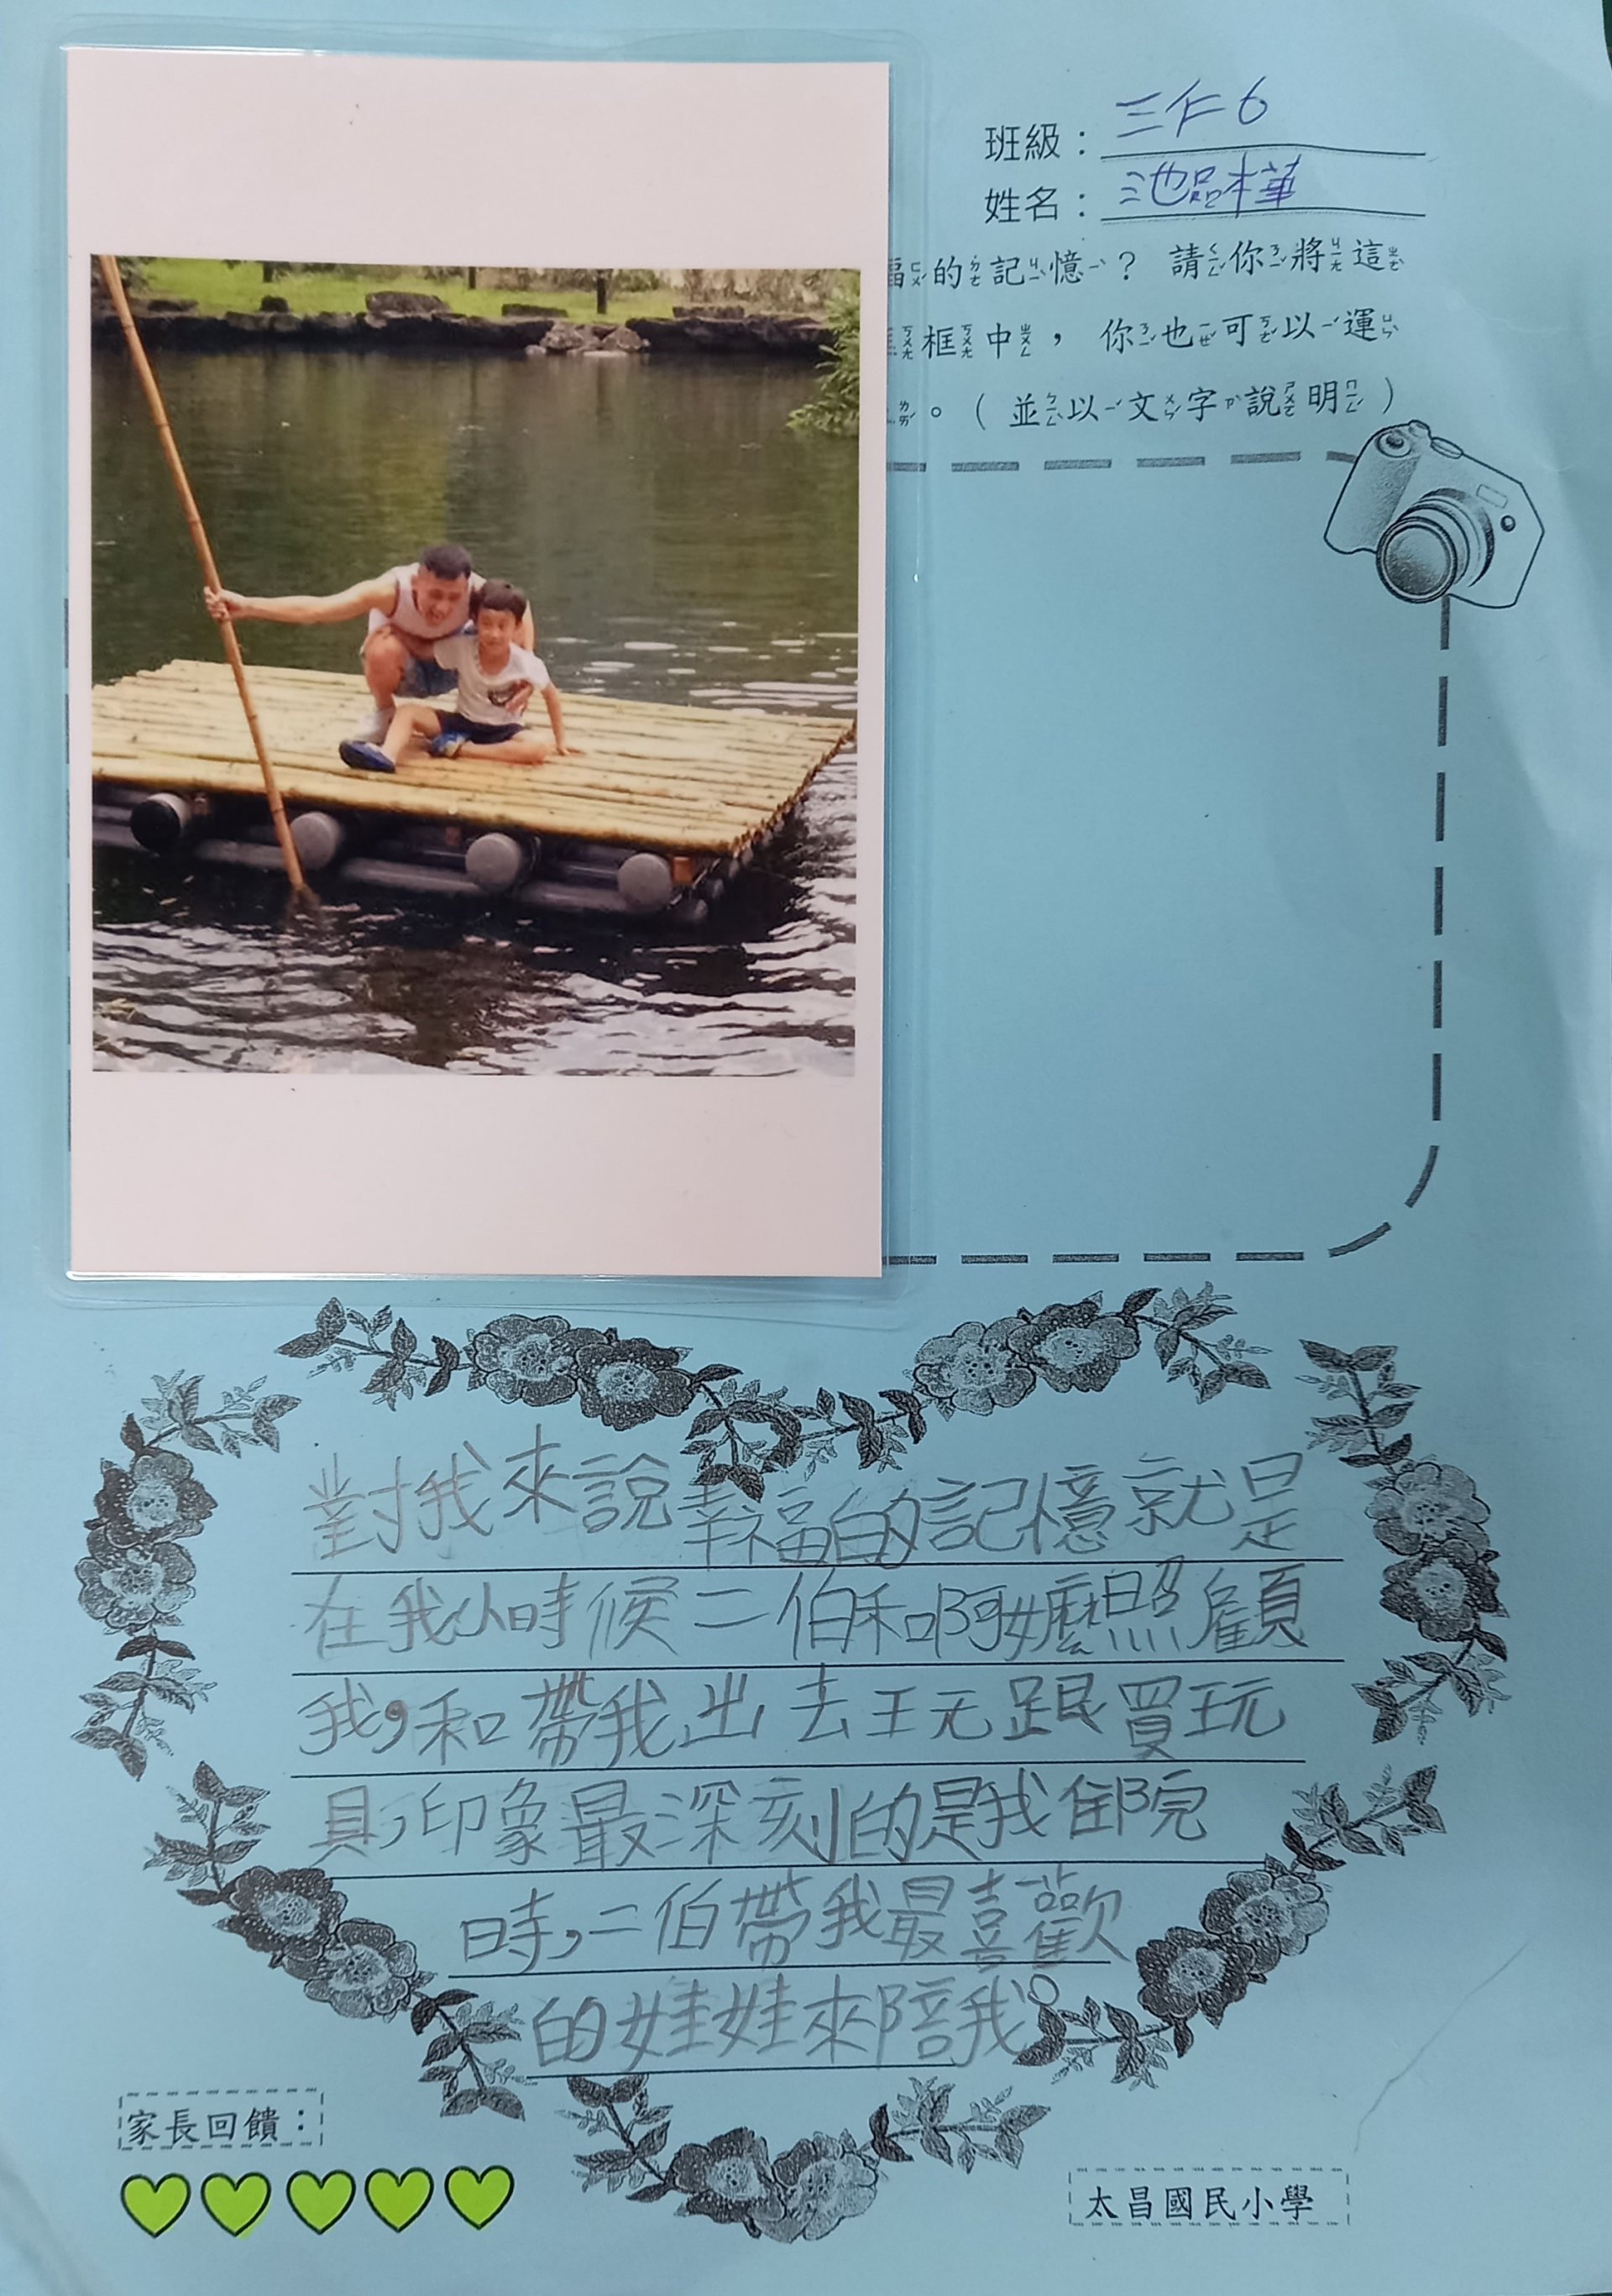 班級：三仁6
姓名：池品樺
福的記憶？請你將這
框中，你也可以運
。（並以文字說明）
對我來說幸福的記憶就是
在我小時候二伯和啊嬤照顧
我，和帶我出去玩跟買玩
具，印象最深刻的是我住院
時，二伯帶我最喜歡
的娃娃來陪我。
家長回饋：
太昌國民小學